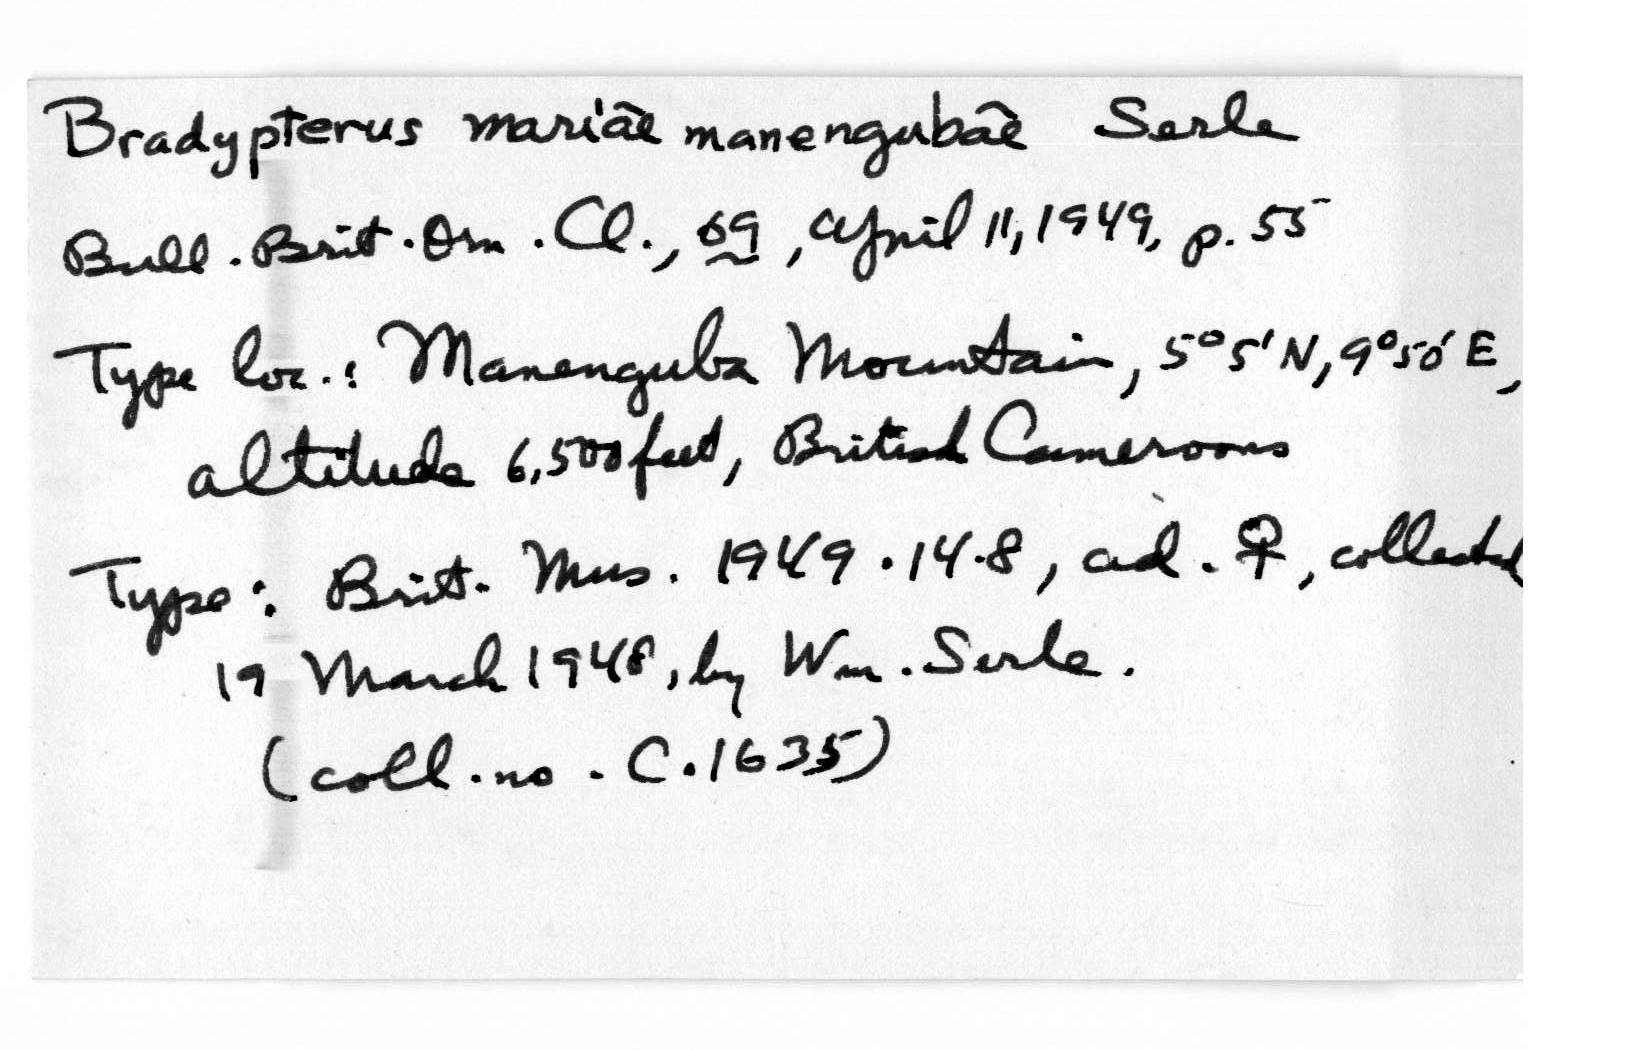 Bradypterus mariae manengubae Serle
Bull. Brit. Orn. Cl., 69, April 11, 1949, p. 55
Type loc.: Manenguba Mountain, 5°5' N, 9°50' E,
altitude 6,500 feet, British Cameroons
Type: Brit. Mus. 1949.14.8, ad. ♀, collected
19 March 1948, by Wm. Serle.
(coll. no. C.1635)